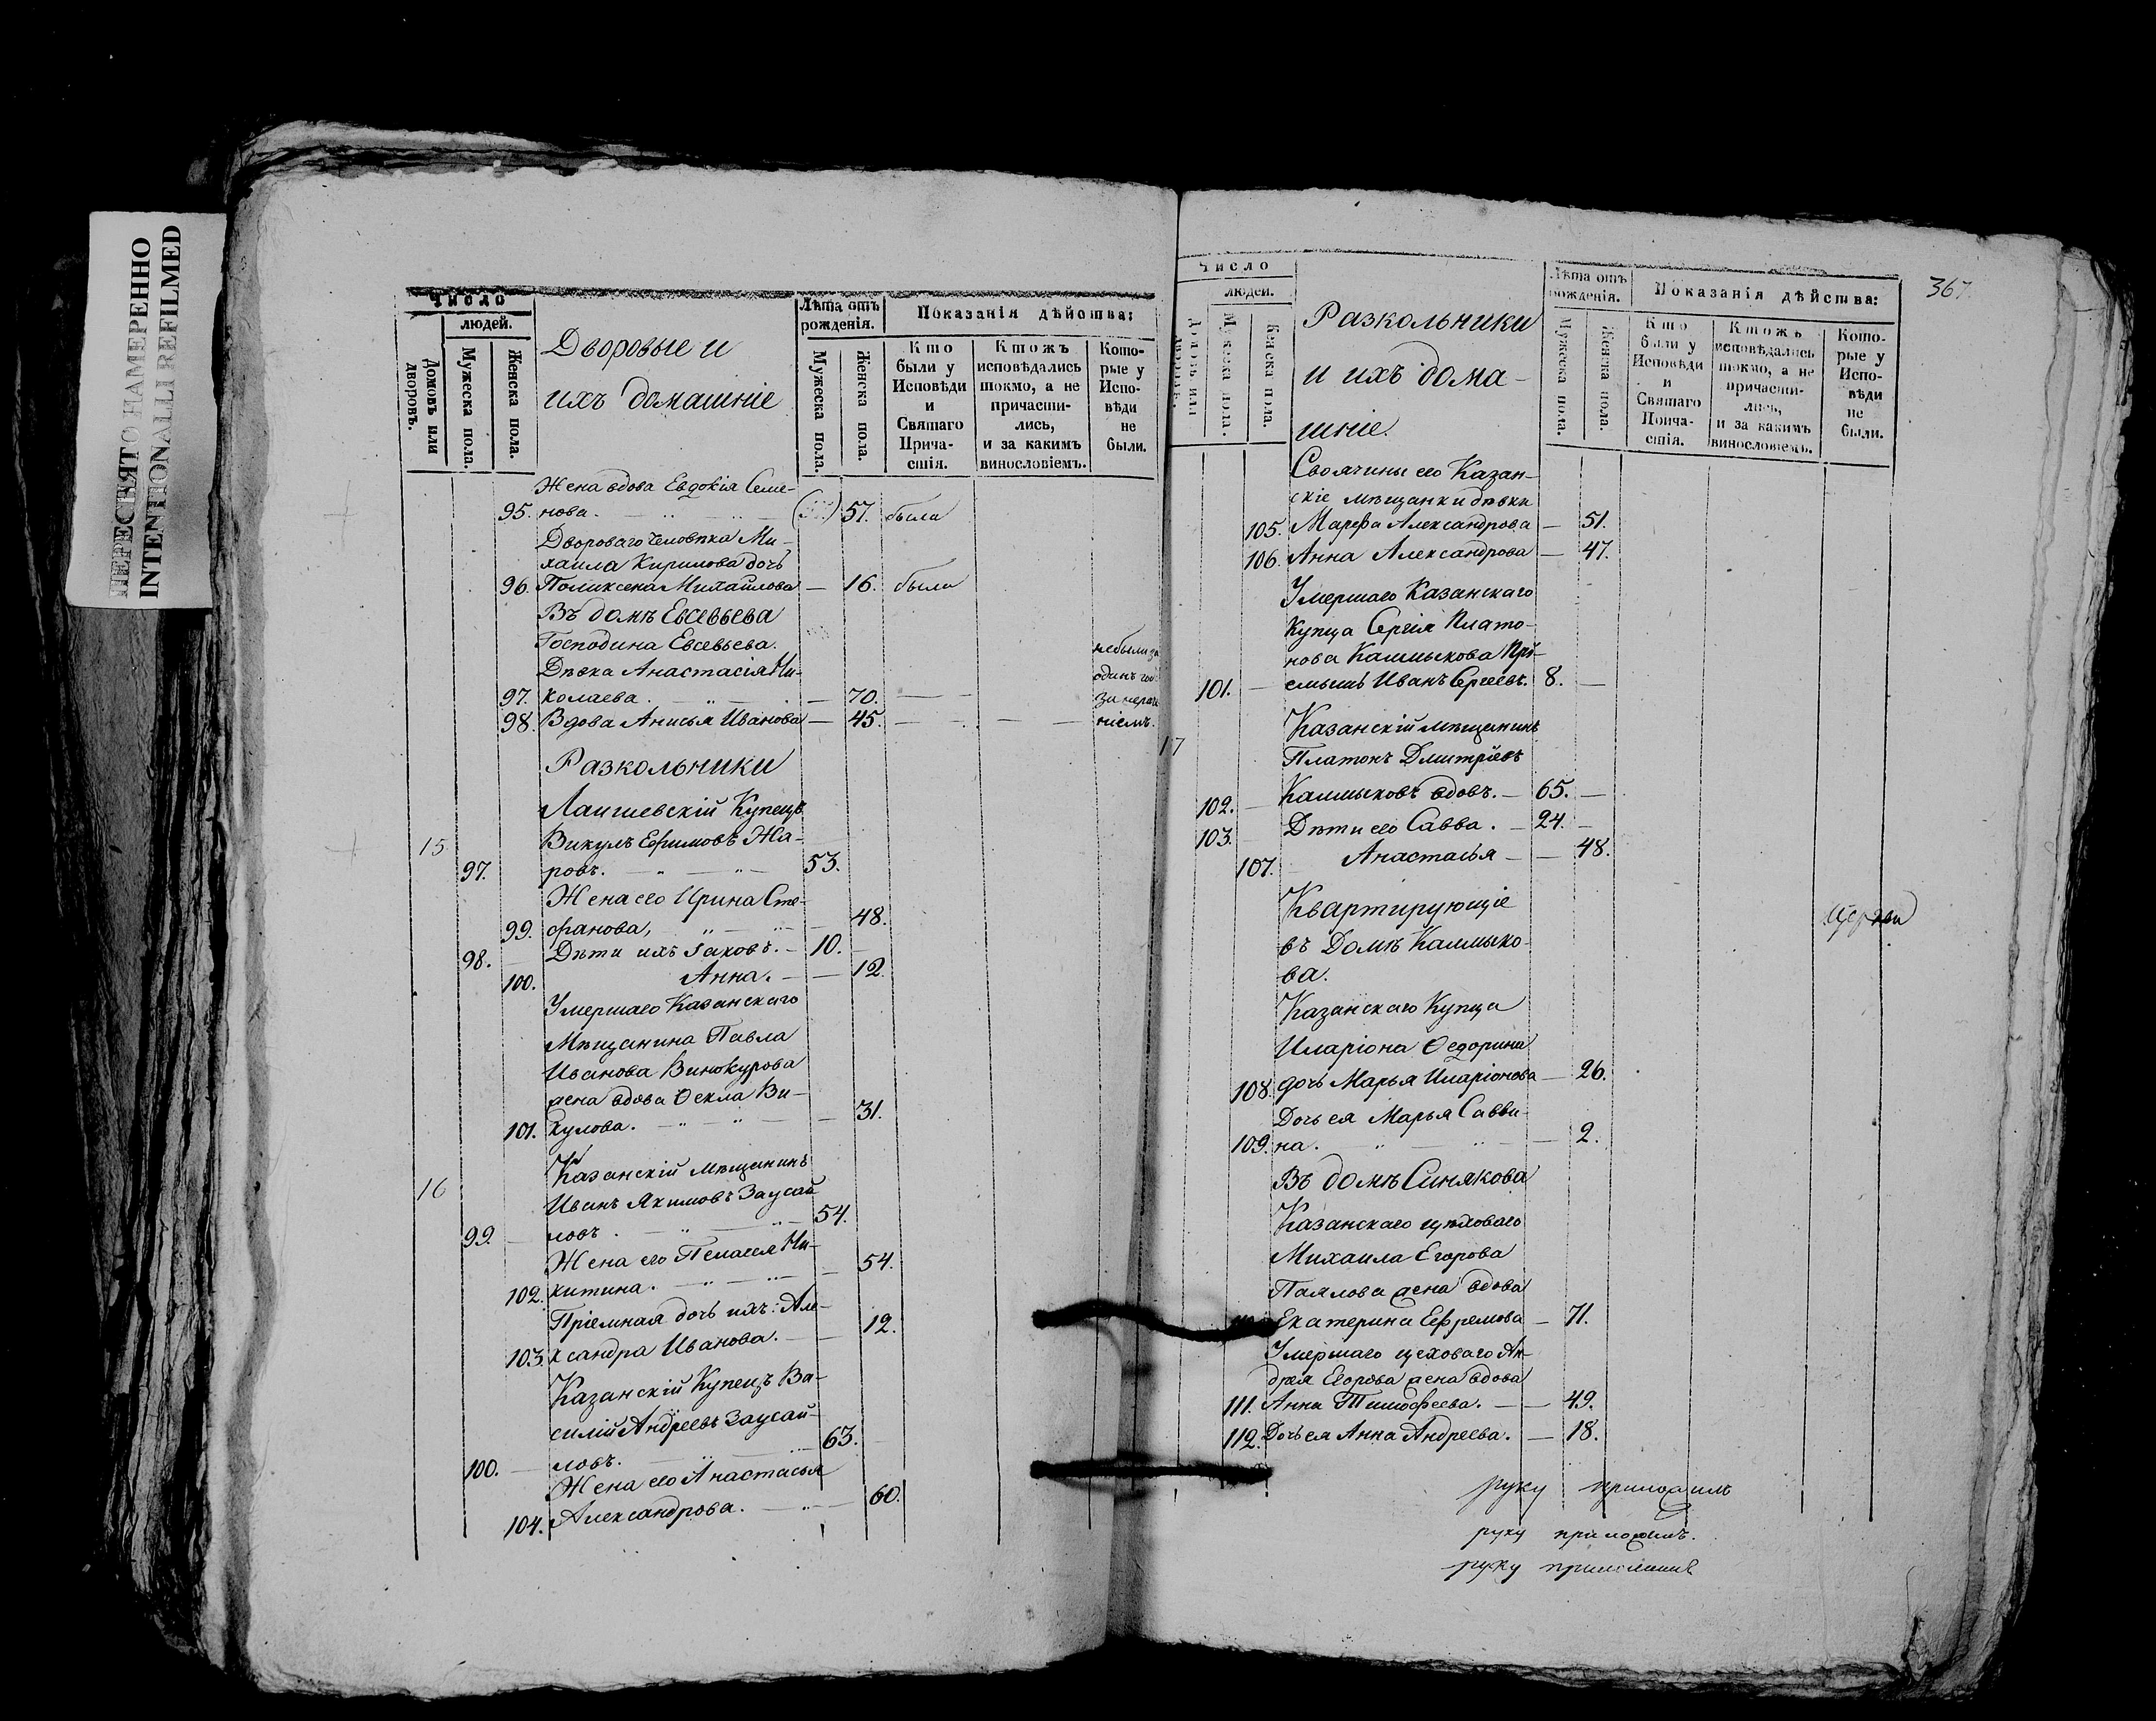 ПЕРЕСНЯТО НАМЕРЕННО
INTENTIONALLI REFILMED
Число
людей.
Домовъ или дворовъ.
Мужеска пола.
Женска пола.
Дворовые и
ихъ домашніе
Лѣта отъ
рожденія.
Мужеска пола.
Женска пола.
Показанія дѣйства:
Кто
были у
Исповѣди
и
Святаго
Прича-
стія.
Ктожъ
исповѣдались
токмо, а не
причасти-
лись,
и за какимъ
винословіемъ.
Кото-
рые у
Испо-
вѣди
не
были.
Жена вдова Евдокія Семе-
95. нова. 57. была
Двороваго человѣка Ми-
хаила Кирилова дочь
96. Поликсена Михайлова — 16. была
Въ домѣ Евсевьева
Господина Евсевьева.
Дѣвка Анастасія Ни-
97. колаева. — 70.
98. Вдова Анисья Иванова — 45.
небыли за
одинъ
Разкольники
Лаишевскій Купецъ
15 Викулъ Ефимовъ Жа-
97. ровъ. 53.
Жена его Ирина Сте-
99. фанова, — 48.
98. Дѣти ихъ Іаковъ. — 10.
100. Анна. — 12.
Умершаго Казанскаго
Мѣщанина Павла
Иванова Винокурова
жена вдова Ѳекла Ви-
101. кулова. — 31.
Казанскій мѣщанинъ
16 Иванъ Якимовъ Заусай
99. ловъ. 54.
Жена его Пелагея Ни-
102. китина. — 54.
Пріемная дочь ихъ: Але-
103. ксандра Иванова. — 12.
Казанскій Купецъ Ва-
силій Андреевъ Заусай-
100. ловъ. 63.
Жена его Анастасья
104. Александрова. — 60.
367.
Число
людей.
Домовъ или дворовъ.
Мужеска пола.
Женска пола.
Разкольники
и ихъ дома-
шніе.
Лѣта отъ
рожденія.
Мужеска пола.
Женска пола.
Показанія дѣйства:
Кто
были у
Исповѣди
и
Святаго
Прича-
стія.
Ктожъ
исповѣдались
токмо, а не
причасти-
лись,
и за какимъ
винословіемъ.
Кото-
рые у
Испо-
вѣди
не
были.
Своячины его Казан-
скіе мѣщанки дѣвки
105. Марѳа Александрова — 51.
106. Анна Александрова — 47.
Умершаго Казанскаго
Купца Сергія Плато-
нова Калмыкова Прі-
101. — емышъ Иванъ Сергеевъ. 8. —
17 Казанскій мѣщанинъ
Платонъ Дмитріевъ
102. — Калмыковъ вдовъ. — 65. —
103. Дѣти его Савва. — 24. —
107. Анастасья — — 48.
Квартирующіе
въ Домѣ Калмыко-
ва.
Казанскаго Купца
Иларіона Ѳедорина
108. дочь Марья Иларіонова — 26.
Дочь ея Марья Савви-
109. на. — 2.
Въ домѣ Синякова
Казанскаго цѣховаго
Михаила Егорова
Паялова жена вдова
Екатерина Ефремова — 71.
Умершаго цеховаго Ан-
дрея Егорова жена вдова
111. Анна Тимофеева. — — 49.
112. Дочь ея Анна Андреева. — 18.
руку приложилъ
руку приложилъ.
руку приложилъ